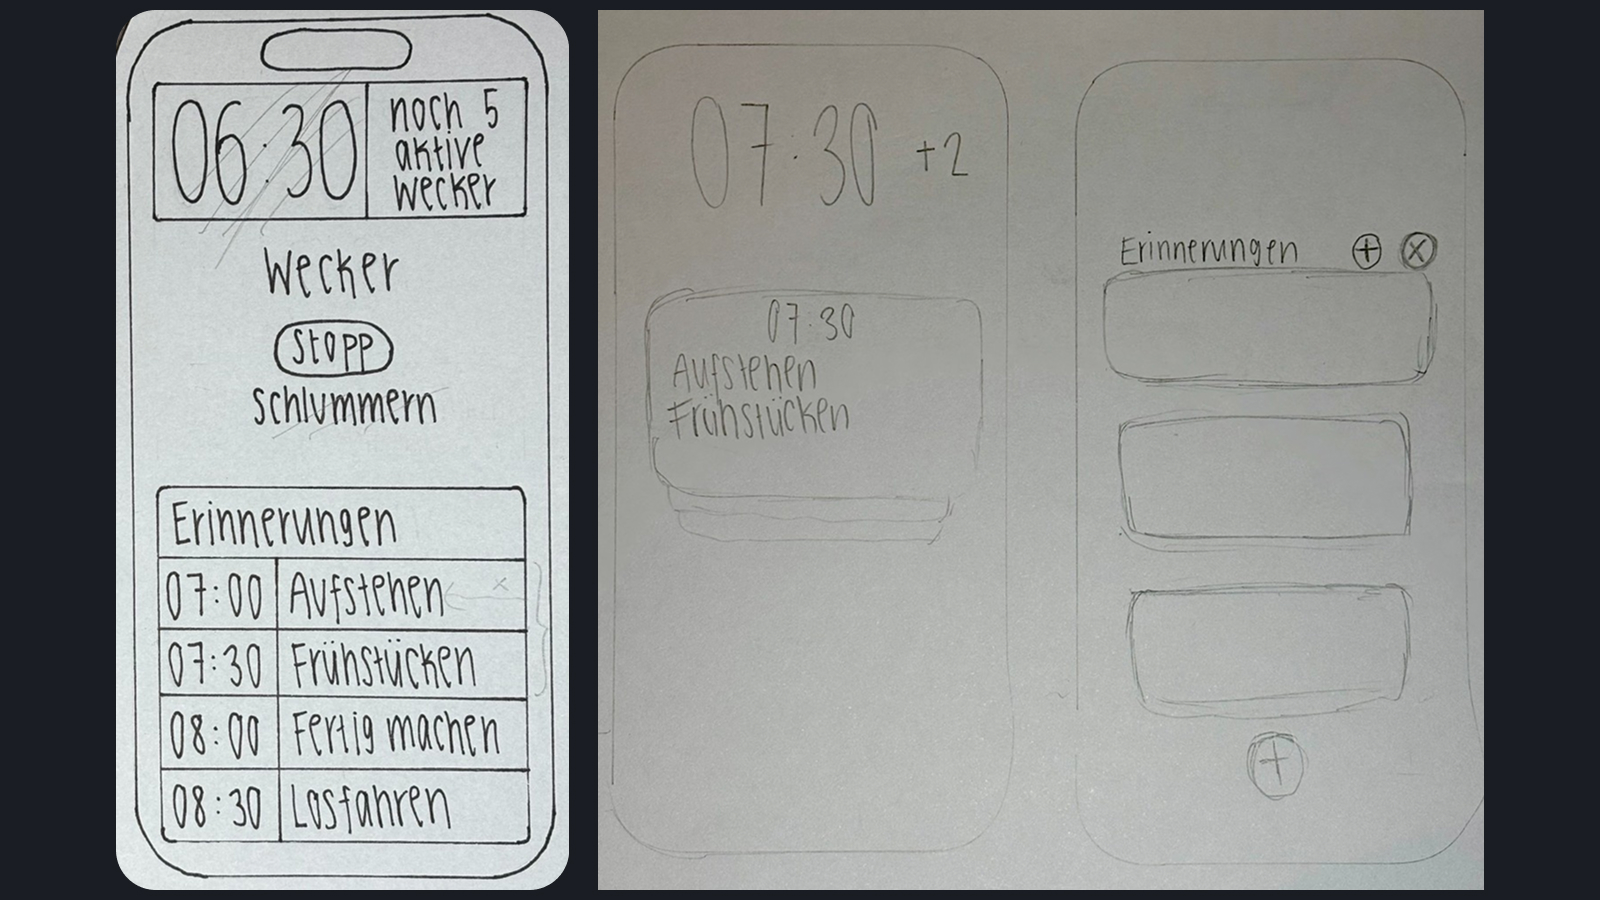 06:30
noch 5
aktive
wecker
Wecker
Stopp
Schlummern
Erinnerungen
07:00 Aufstehen
07:30 Frühstücken
08:00 Fertig machen
08:30 Losfahren
07:30 +2
07:30
Aufstehen
Frühstücken
Erinnerungen + x
+